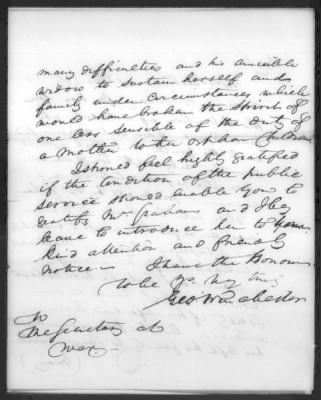 many difficulties and his amiable
widow to sustain herself and
family under circumstances which
would have broken the spirit of
one less sensible of the duty of
a Mother to her orphan Children
I should feel highly gratified
if the Condition of the public
service should enable you to
gratify Mrs Graham and I beg
leave to introduce her to your
kind attention and friendly
notice. I have the Honour
to be Yr.
Geo Winchester
To
The Secretary at
War